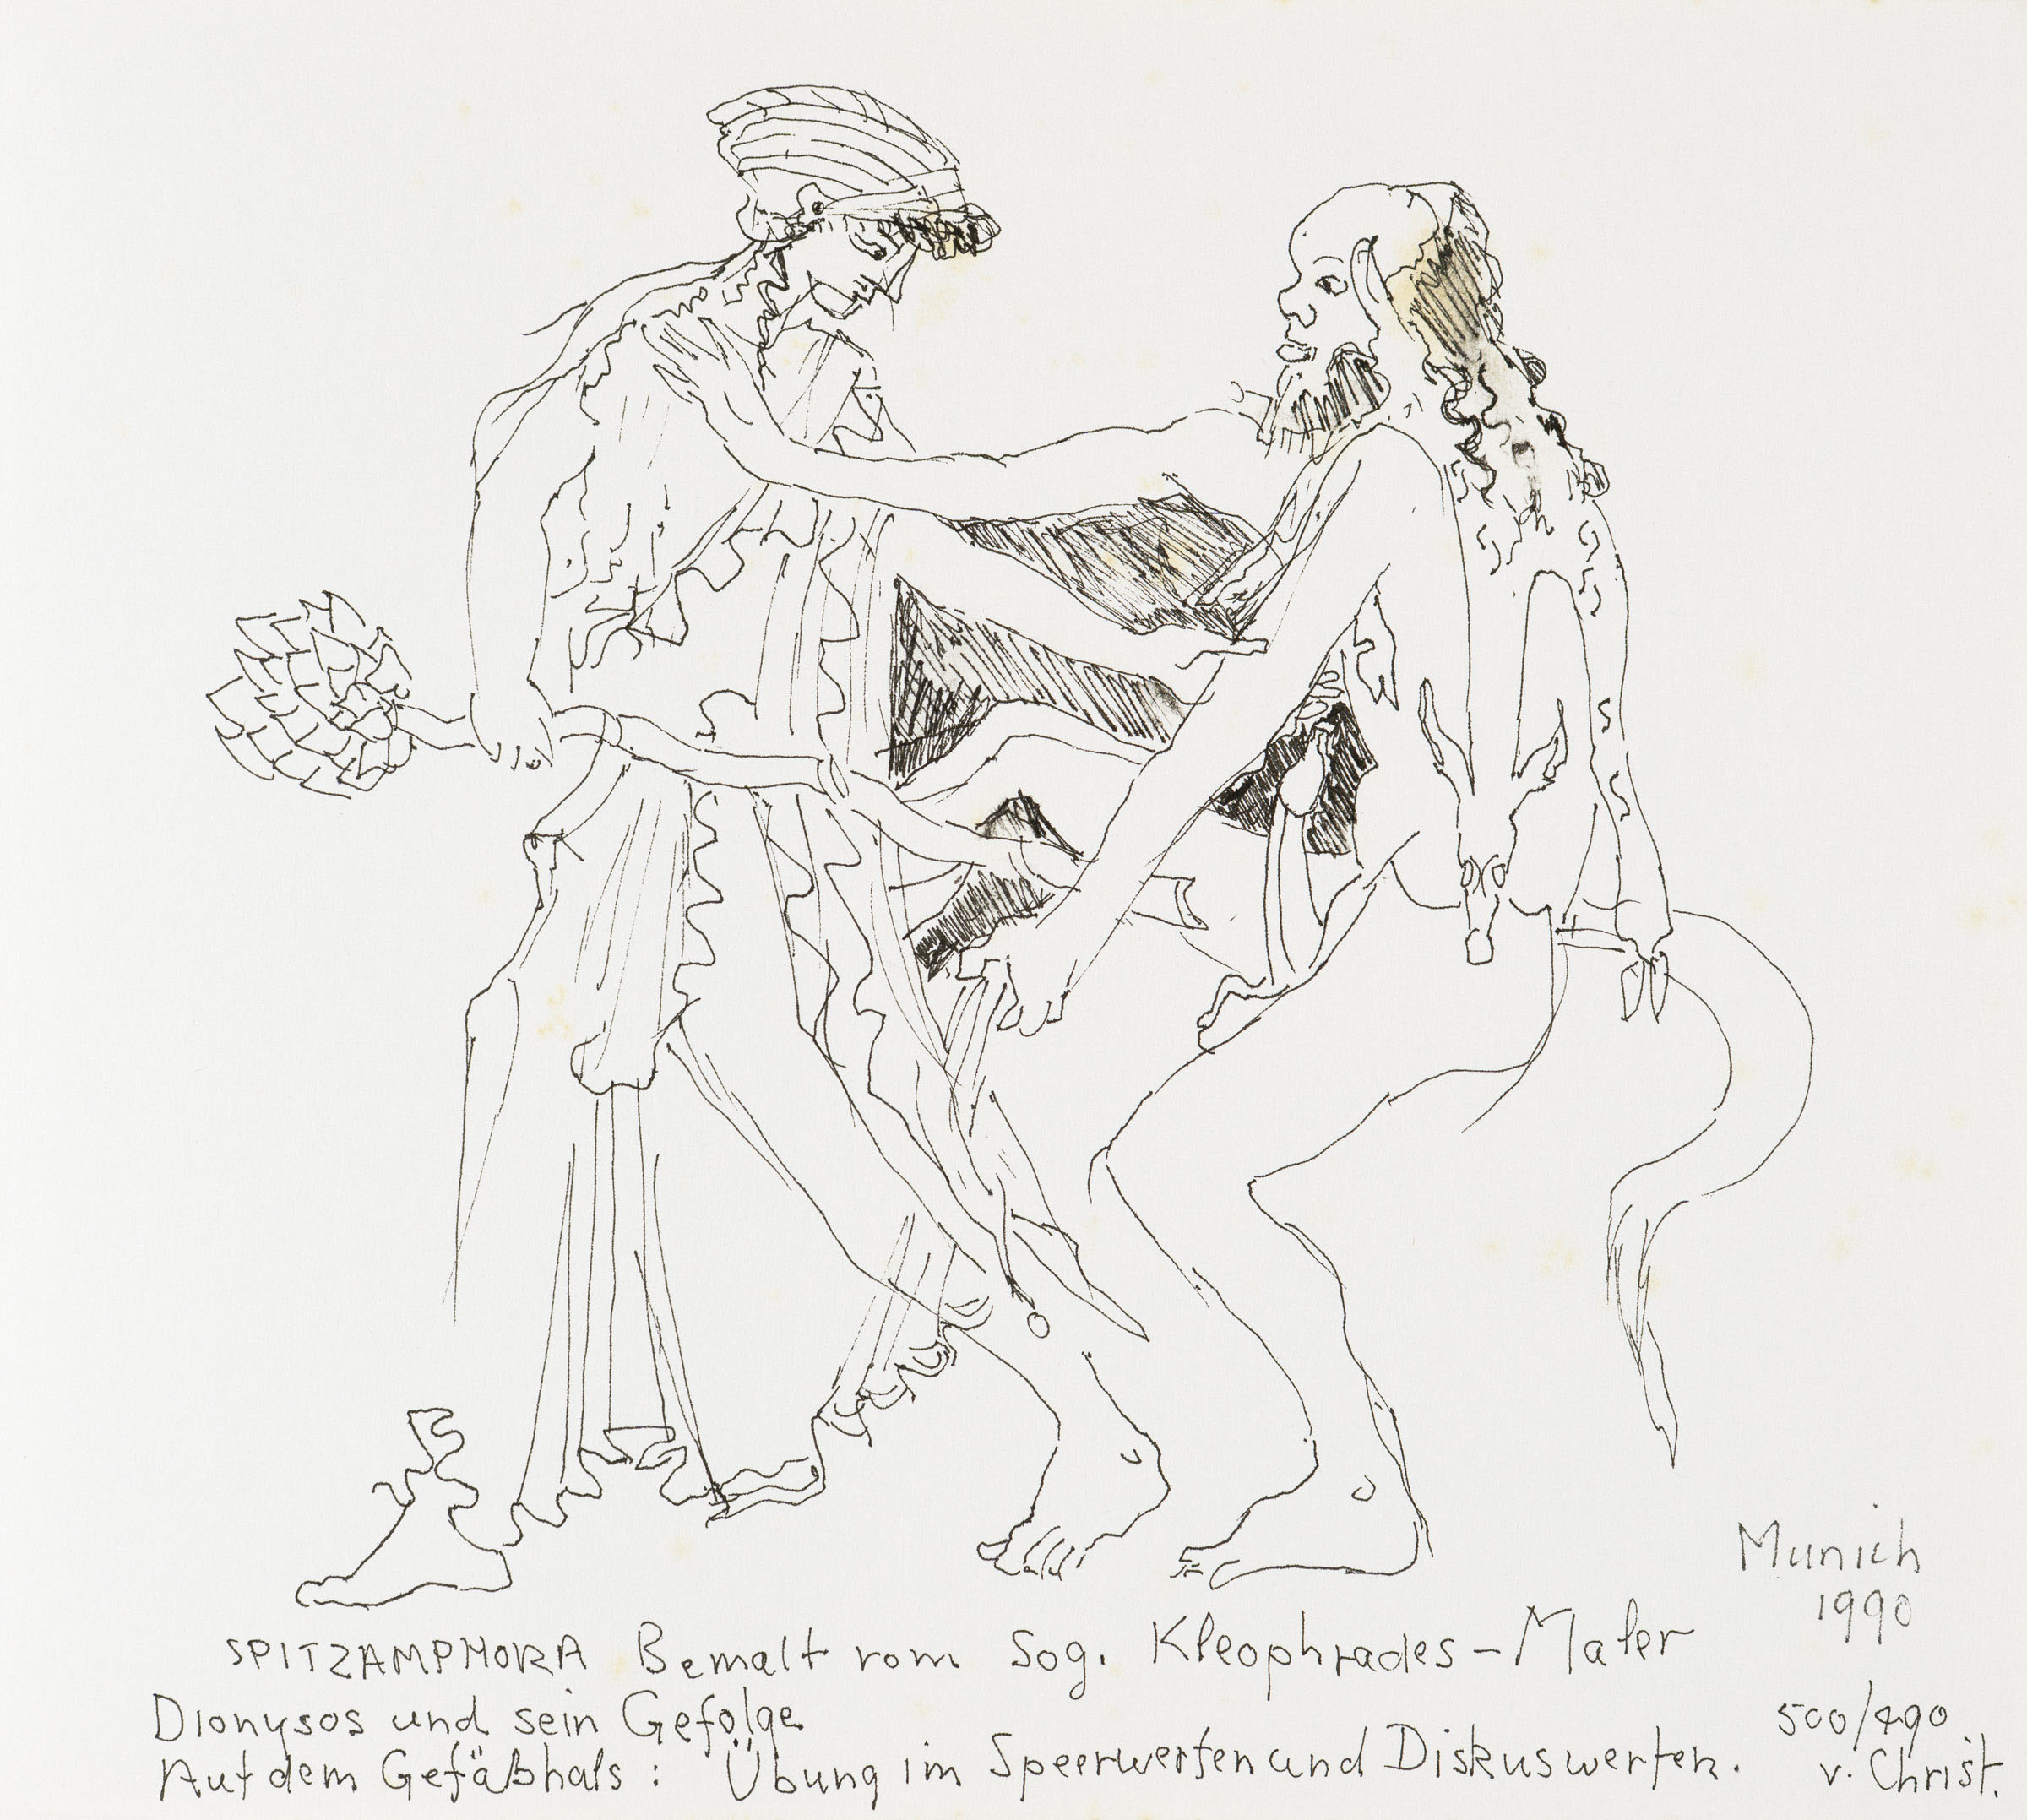 Munich
1990
SPITZAMPHORA Bemalt vom sog. Kleophrades-Maler
Dionysos und sein Gefolge
500/490
Auf dem Gefäßhals: Übung im Speerwerfen und Diskuswerfen.
v. Christ.